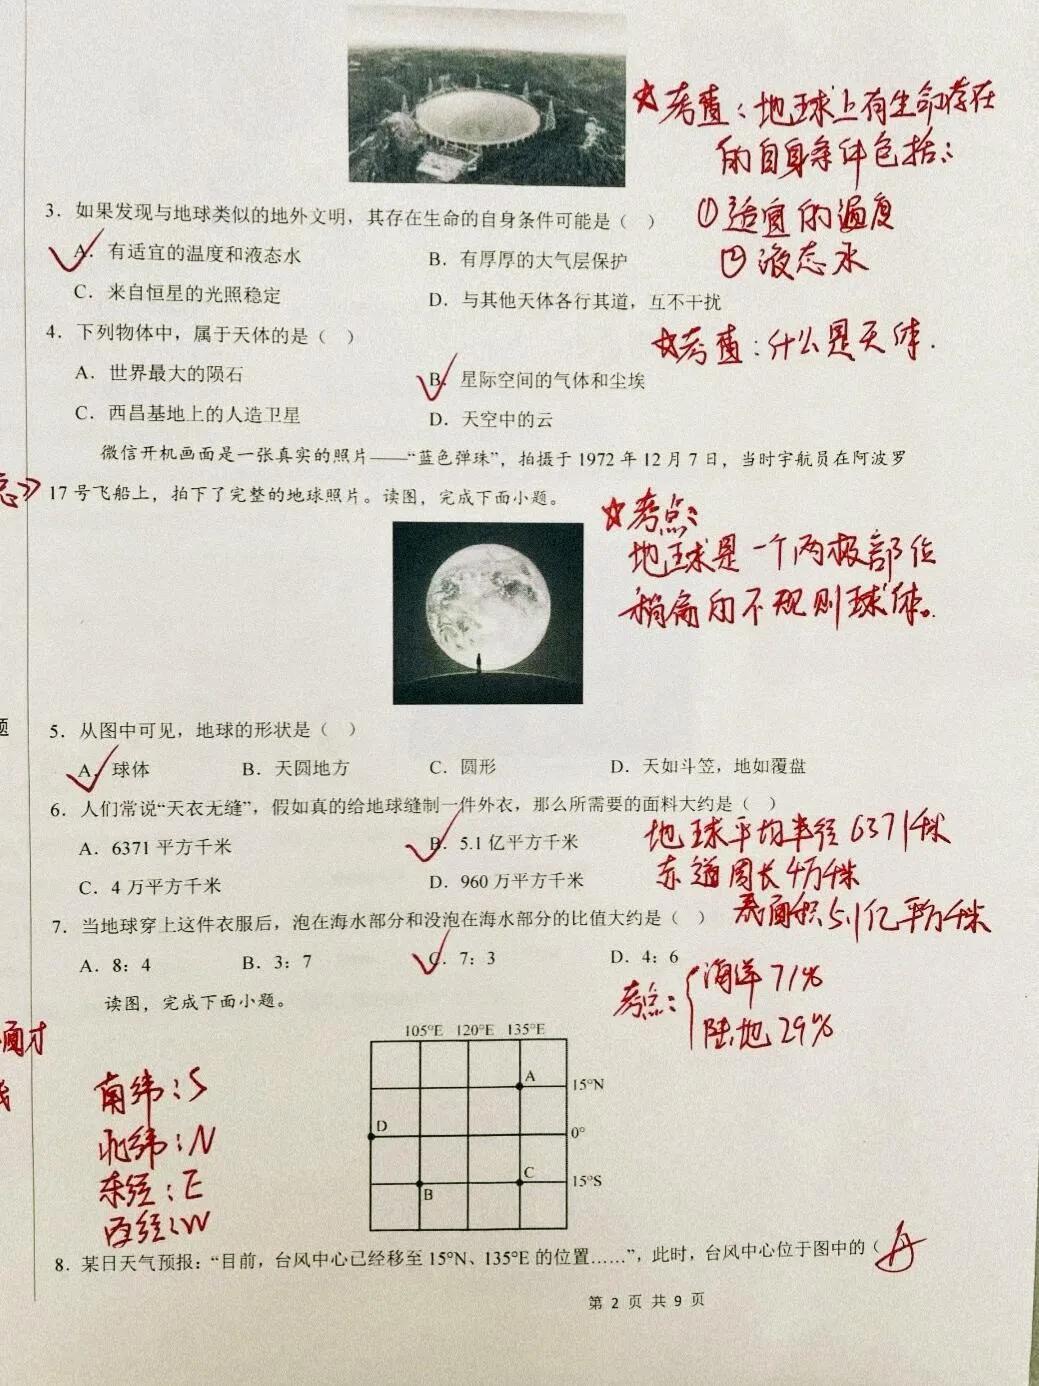 ☆考查：地球上有生命存在
的自身条件包括：
①适宜的温度
②液态水
3．如果发现与地球类似的地外文明，其存在生命的自身条件可能是（　）
A．有适宜的温度和液态水
B．有厚厚的大气层保护
C．来自恒星的光照稳定
D．与其他天体各行其道，互不干扰
4．下列物体中，属于天体的是（　）
☆考查：什么是天体．
A．世界最大的陨石
B．星际空间的气体和尘埃
C．西昌基地上的人造卫星
D．天空中的云
微信开机画面是一张真实的照片——“蓝色弹珠”，拍摄于 1972 年 12 月 7 日，当时宇航员在阿波罗
17 号飞船上，拍下了完整的地球照片。读图，完成下面小题。
☆考点：
地球是一个两极部位
稍扁的不规则球体。
题
5．从图中可见，地球的形状是（　）
A．球体
B．天圆地方
C．圆形
D．天如斗笠，地如覆盘
6．人们常说“天衣无缝”，假如真的给地球缝制一件外衣，那么所需要的面料大约是（　）
A．6371 平方千米
B．5.1 亿平方千米
C．4 万平方千米
D．960 万平方千米
地球平均半径6371千米
赤道周长4万千米
表面积5.1亿平方千米
7．当地球穿上这件衣服后，泡在海水部分和没泡在海水部分的比值大约是（　）
A．8：4
B．3：7
C．7：3
D．4：6
考点：
海洋71%
陆地29%
读图，完成下面小题。
105°E 120°E 135°E
A
15°N
D
0°
C
B
15°S
南纬：S
北纬：N
东经：E
西经：W
8．某日天气预报：“目前，台风中心已经移至 15°N、135°E 的位置……”，此时，台风中心位于图中的（
A
第 2 页 共 9 页